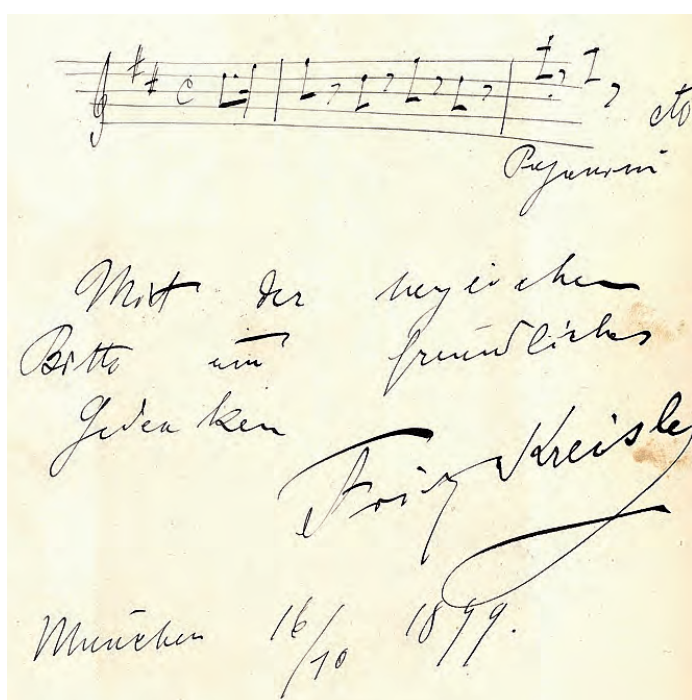 etc
Paganini
Mit der herzlichen
Bitte um freundliches
Gedenken
Fritz Kreisler
München 16/10 1899.